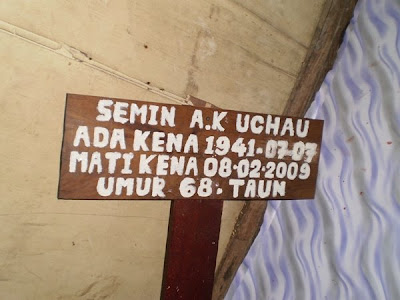 SEMIN A.K UCHAU
ADA KENA 1941.07-07
MATI KENA 08.02.2009
UMUR 68. TAUN